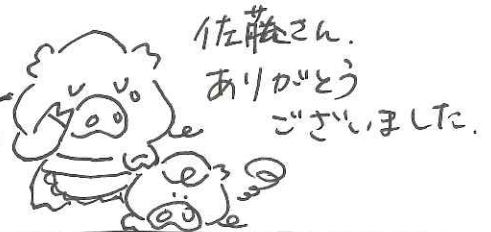 佐藤さん.
ありがとう
ございました.